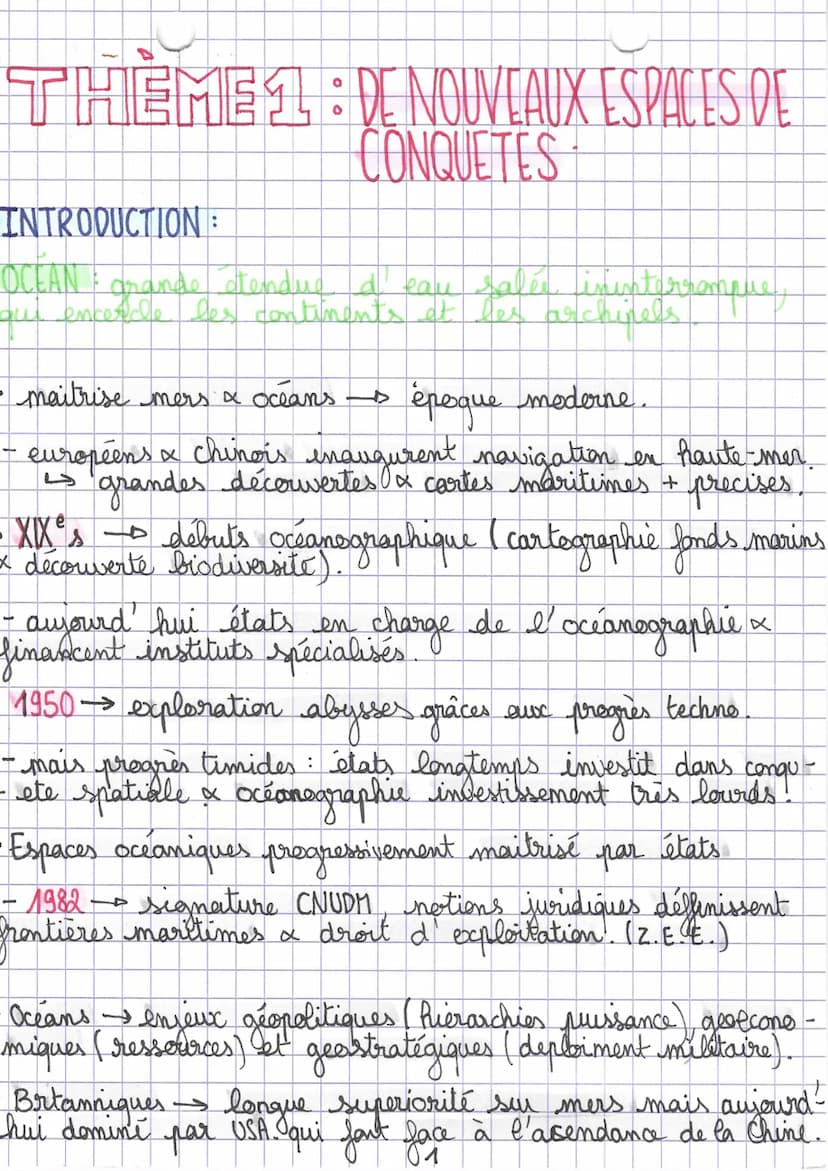 THÈME 1 : DE NOUVEAUX ESPACES DE
CONQUETES.
INTRODUCTION :
OCÉAN : grande étendue d'eau salée ininterrompue,
qui encercle les continents et les archipels.
- maitrise mers & océans → époque moderne.
- européens & chinois inaugurent navigation en haute-mer.
↳ grandes découvertes & cartes maritimes + precises.
- XIXe s → débuts océanographique (cartographie fonds marins
& découverte biodiversité).
- aujourd'hui états en charge de l'océanographie &
financent instituts spécialisés.
1950 → exploration abysses grâces aux progrès techno.
- mais progrès timides : états longtemps investit dans conqu-
- ete spatiale & océanographie investissement très lourds !
Espaces océaniques progressivement maitrisé par états
- 1982 → signature CNUDM, notions juridiques déffinissent
frontières maritimes & droit d'exploitation. (Z.E.E.)
Océans → enjeux géopolitiques (hiérarchies puissance), geoécono-
miques (ressources) et geostratégiques (deploiment militaire).
Britanniques → longue superiorité sur mers mais aujourd'-
hui dominé par USA qui font face à l'asendance de la Chine.
1